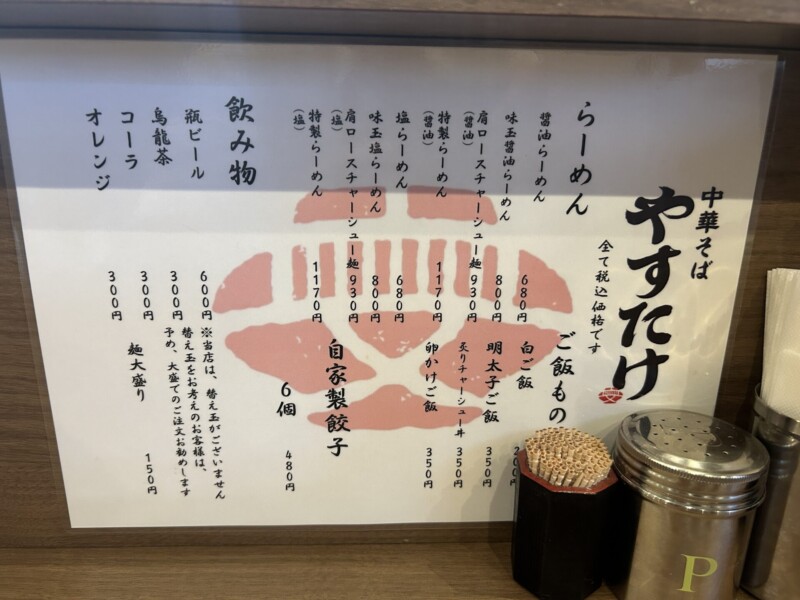 中華そば
やすたけ
全て税込価格です
らーめん
醤油らーめん 680円
味玉醤油らーめん 800円
肩ロースチャーシュー麺(醤油) 930円
特製らーめん(醤油) 1170円
塩らーめん 680円
味玉塩らーめん 800円
肩ロースチャーシュー麺(塩) 930円
特製らーめん(塩) 1170円
ご飯もの
白ご飯
明太子ご飯 350円
炙りチャーシュー丼 350円
卵かけご飯 350円
自家製餃子
6個 480円
飲み物
瓶ビール 600円
烏龍茶 300円
コーラ 300円
オレンジ 300円
※当店は、替え玉がございません
替え玉をお考えのお客様は、
予め、大盛でのご注文お勧めします
麺大盛り 150円
P